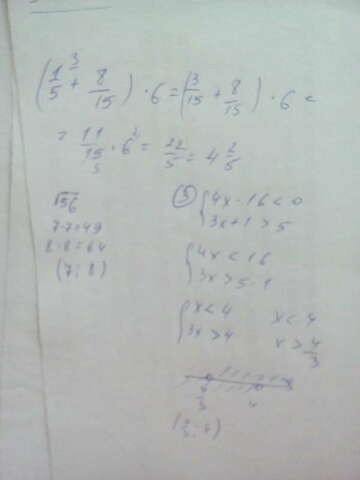 (1/5 + 8/15) · 6 = (3/15 + 8/15) · 6 =
= 11/15 · 6 = 22/5 = 4 2/5
√56
7·7=49
8·8=64
(7; 8)
③ { 4x - 16 < 0
3x + 1 > 5
{ 4x < 16
3x > 5 - 1
{ x < 4
3x > 4
x < 4
x > 4/3
4/3 4